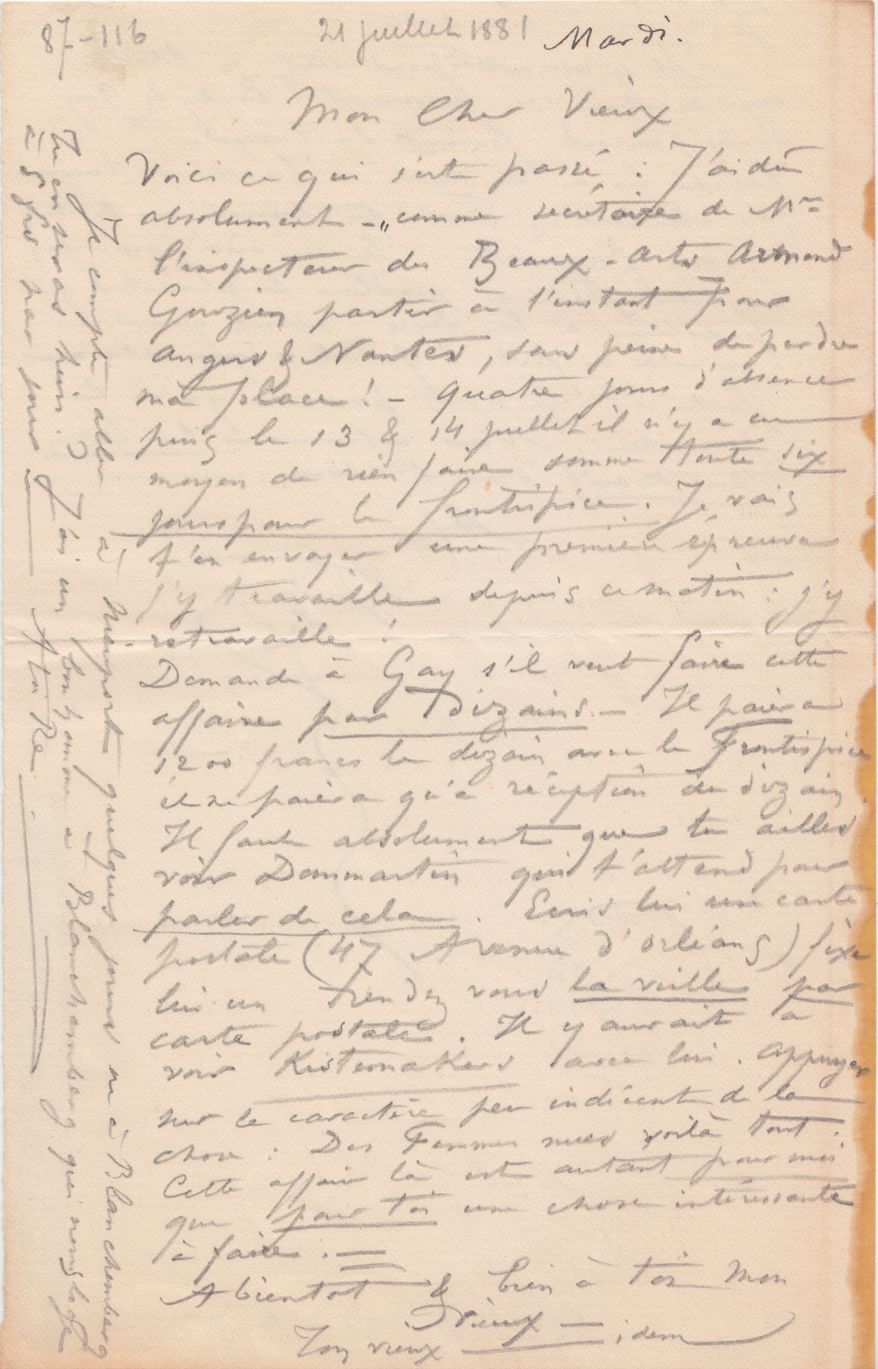 87-116
21 juillet 1881 Mardi.
Mon Cher Vieux
Voici ce qui s'est passé : J'ai dû
absolument - „comme secrétaire de Mr
l'inspecteur des Beaux-Arts Armand
Gouzien partir à l'instant pour
Angers & Nantes, sous peine de perdre
ma place ! - Quatre jours d'absence
puis le 13 & 14 juillet il n'y a eu
moyen de rien faire somme toute six
jours pour le frontispice. Je vais
t'en envoyer une première épreuve
j'y travaille depuis ce matin : j'y
retravaille !
Demande à Gay s'il veut faire cette
affaire par Dizains. - Il paiera
1200 francs le dizain avec le Frontispice
il ne paiera qu'à réception du dizain
Il faut absolument que tu ailles
voir Dommartin qui t'attend pour
parler de cela. Ecris lui une carte
postale (47 Avenue d'Orléans) fixe
lui un rendez vous la veille par
carte postale. Il y aurait à
voir Kistemakers avec lui. Appuyer
sur le caractère peu indécent de la
chose : Des Femmes nues voilà tout.
Cette affaire là est autant pour moi
que pour toi une chose intéressante
à faire. —
A bientot & bien à toi Mon
Vieux —
Ton vieux — idem
Je compte aller à Nieuport quelques jours ou à Blanchemberg
Tu en seras hein ? J'ai un bonhomme à Blanchemberg qui nous loge
à par jour —